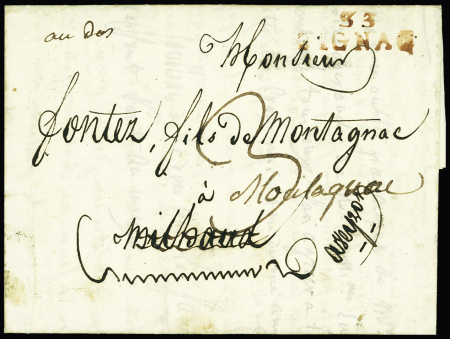 au dos
33
GIGNAC
Monsieur
fontez, fils de Montagnac
3
à Montagnac
Milhaud